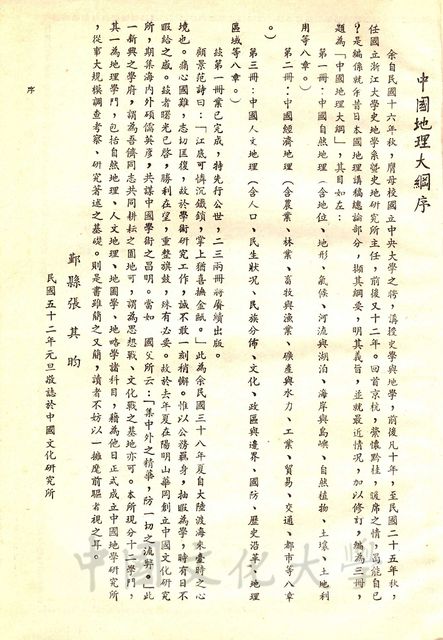 中國地理大綱序
余自民國十六年秋，膺母校國立中央大學之聘，講授史學與地學，前後凡十年，至民國二十五年秋，
任國立浙江大學史地學系暨史地研究所主任，前後又十二年。回首京杭，縈懷黔桂，遞席之情，曷能自已
？是編係就年昔日本國地理講稿總論部分，擷其綱要，明其義旨，並就最近情況，加以修訂，編為三冊，
題為「中國地理大綱」，其目如左：
第一冊：中國自然地理（含地位、地形、氣候、河流與湖泊、海岸與島嶼、自然植物、土壤、土地利
用等八章。）
第二冊：中國經濟地理（含農業、林業、畜牧與漁業、礦產與水力、工業、貿易、交通、都市等八章
。）
第三冊：中國人文地理（含人口、民生狀況、民族分佈、文化、政區與邊界、國防、歷史沿革、地理
區域等八章。）
茲第一冊業已完成，特先行公世，二三兩冊將賡續出版。
顧景范詩曰：「江底可憐沉鐵鎖，掌上猶喜撫金甌。」此為余民國三十八年夏自大陸渡海來臺時之心
境也。痛心國難，志切匡復，故於學術研究工作，誠不敢一刻稍懈。惟以公務羈身，抽暇為學，時有日不
暇給之感。茲者曙光已啓，勝利在望，重整旗鼓，殊有必要。故於去年夏在陽明山華岡創立中國文化研究
所，期集海內外碩儒英彥，共謀中國學術之昌明。當如　國父所云：「集中外之精華，防一切之流弊。」此
一新興之學府，謂為吾儕同志共同耕耘之園地可，謂為思想戰、文化戰之基地亦可。本所現分十二學門，
其一為地理學門，包括自然地理、人文地理、地圖學、地略學諸科目，藉為他日正式成立中國地學研究所
，從事大規模調查考察、研究著述之基礎。則是書雖簡之又簡，讀者不妨以一擁麾前驅者視之耳。
鄞縣張其昀
民國五十二年元旦敬誌於中國文化研究所
序
中國文化大學